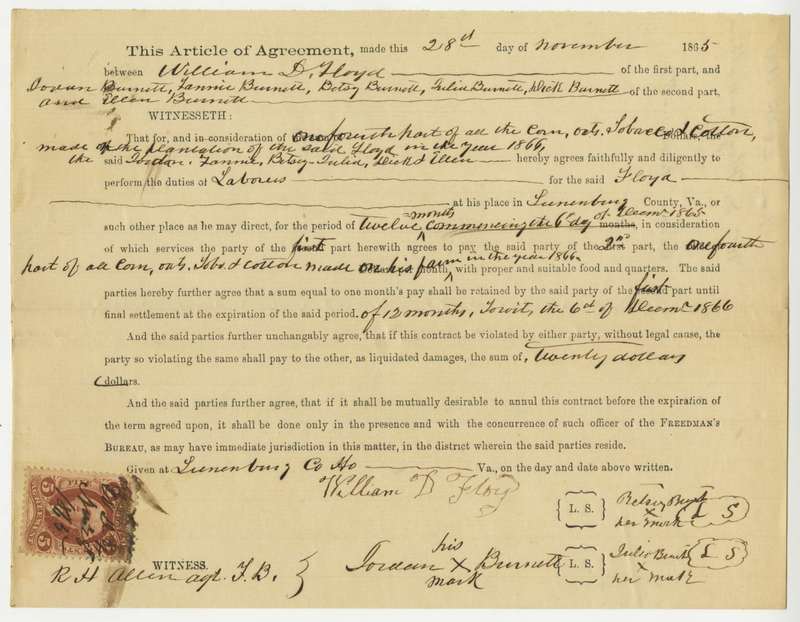 This Article of Agreement, made this 28st day of November 1865
between William D. Floyd of the first part, and
Jordan Burnett, Fannie Burnett, Betsy Burnett, Julia Burnett, Dick Burnett of the second part,
and Ellen Burnett
WITNESSETH:
That for, and in consideration of one fourth part of all the Corn, oats, Tobacco & Cotton, Dollars, the
made on the plantation of the said Floyd in the year 1866,
the said Jordan, Fannie, Betsy, Julia, Dick & Ellen hereby agrees faithfully and diligently to
perform the duties of Laborers for the said Floyd
at his place in Lunenburg County, Va., or
such other place as he may direct, for the period of twelve months Commencing the 6th day of Decemr 1865 months, in consideration
of which services the party of the first part herewith agrees to pay the said party of the 2nd part, the one fourth
part of all Corn, oats, Tobo & cotton made on his farm in the year 1866 month, with proper and suitable food and quarters. The said
parties hereby further agree that a sum equal to one month's pay shall be retained by the said party of the first part until
final settlement at the expiration of the said period. of 12 months, Towit, the 6st of Decemr 1866
And the said parties further unchangably agree, that if this contract be violated by either party, without legal cause, the
party so violating the same shall pay to the other, as liquidated damages, the sum of, twenty dollars
dollars.
And the said parties further agree, that if it shall be mutually desirable to annul this contract before the expiration of
the term agreed upon, it shall be done only in the presence and with the concurrence of such officer of the FREEDMAN'S
BUREAU, as may have immediate jurisdiction in this matter, in the district wherein the said parties reside.
Given at Lunenburg Co Ho Va., on the day and date above written.
William D Floyd
L. S.
Betsey Burnett
her X mark
L S
WITNESS.
R H Allen agt. F. B.
Jordan his X mark Burnett
L. S.
Julia Burnett
her X mark
L S
5
5